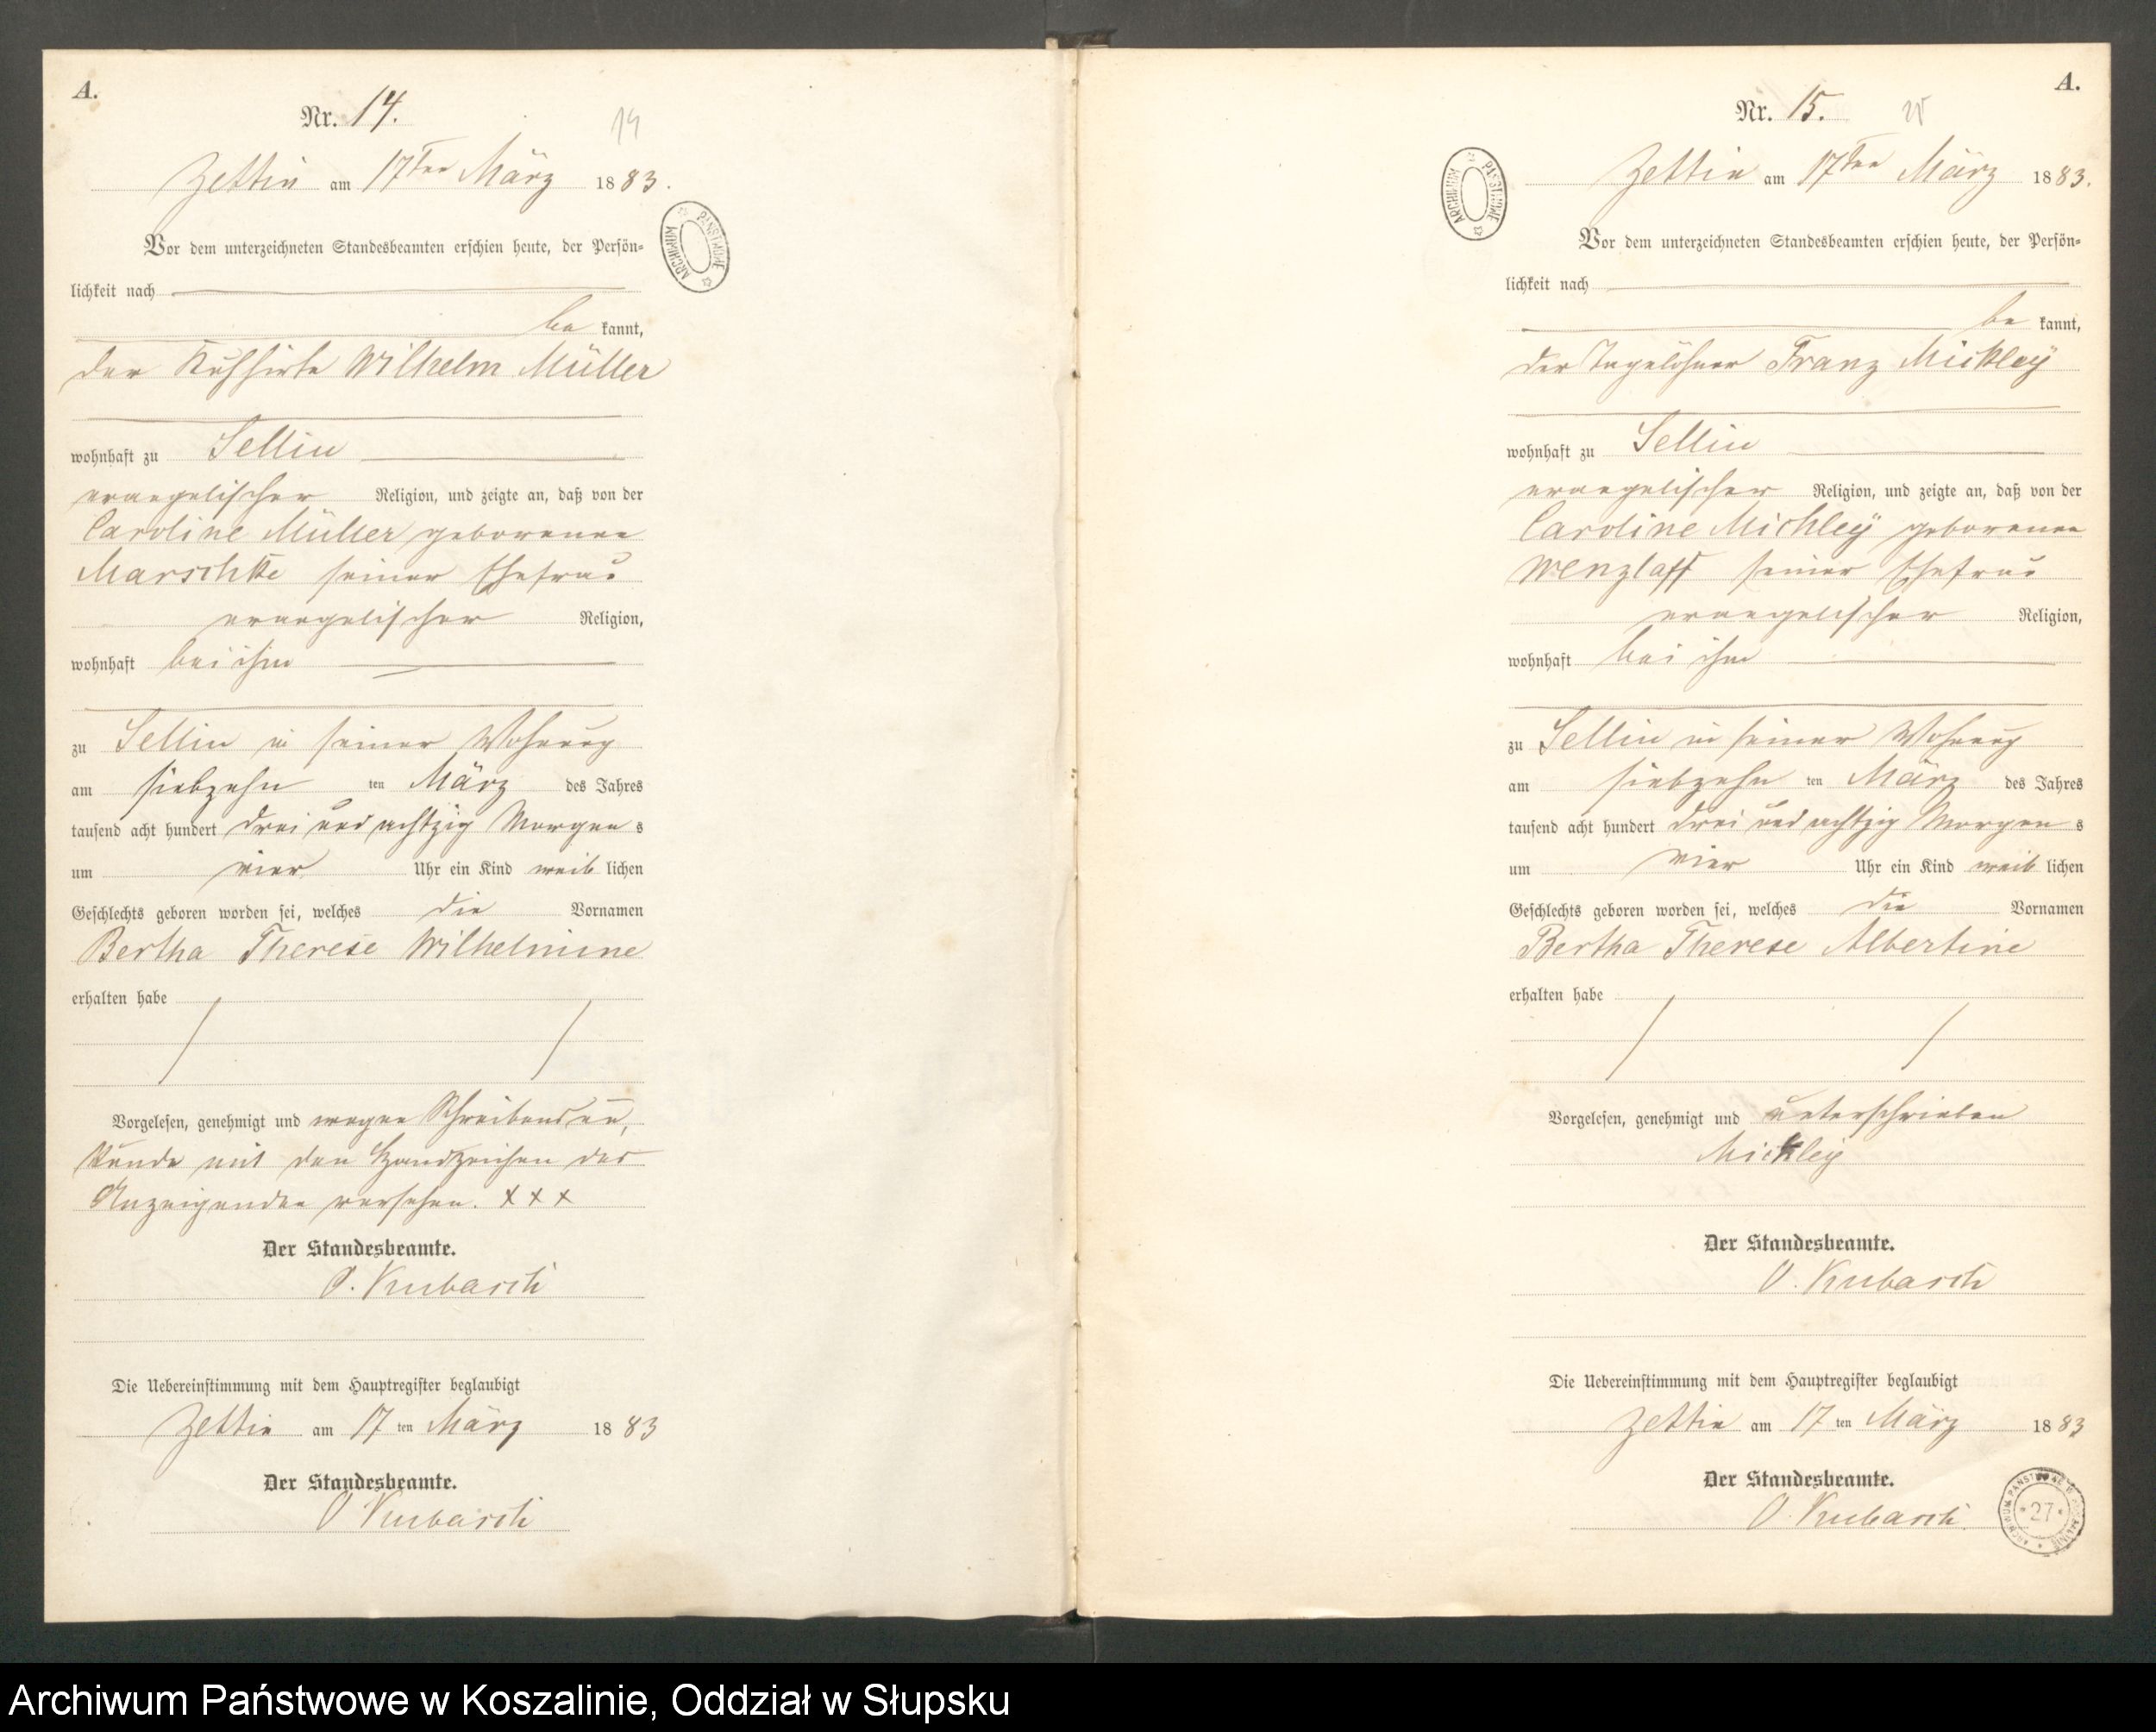 A.
Nr. 14.
14
Zettin am 17ten März 1883.
Vor dem unterzeichneten Standesbeamten erschien heute, der Persön-
lichkeit nach
be kannt,
der Kuhhirte Wilhelm Müller
wohnhaft zu Sellin
evangelischer Religion, und zeigte an, daß von der
Caroline Müller geborenen
Marschke seiner Ehefrau
evangelischer Religion,
wohnhaft bei ihm
zu Sellin in seiner Wohnung
am siebzehn ten März des Jahres
tausend acht hundert drei und achtzig Morgen s
um vier Uhr ein Kind weib lichen
Geschlechts geboren worden sei, welches die Vornamen
Bertha Therese Wilhelmine
erhalten habe
Vorgelesen, genehmigt und wegen Schreibensun-
kunde mit den Handzeichen des
Anzeigenden versehen. XXX
Der Standesbeamte.
O. Kubasch
Die Uebereinstimmung mit dem Hauptregister beglaubigt
Zettin am 17 ten März 1883
Der Standesbeamte.
O Kubasch
ARCHIWUM PAŃSTWOWE
A.
Nr. 15.
Zettin am 17ten März 1883.
ARCHIWUM PAŃSTWOWE
Vor dem unterzeichneten Standesbeamten erschien heute, der Persön-
lichkeit nach
be kannt,
der Tagelöhner Franz Mickley
wohnhaft zu Sellin
evangelischer Religion, und zeigte an, daß von der
Caroline Mickley geborenen
Wenzlaff seiner Ehefrau
evangelischer Religion,
wohnhaft bei ihm
zu Sellin in seiner Wohnung
am siebzehn ten März des Jahres
tausend acht hundert drei und achtzig Morgen s
um vier Uhr ein Kind weib lichen
Geschlechts geboren worden sei, welches die Vornamen
Bertha Therese Albertine
erhalten habe
Vorgelesen, genehmigt und unterschrieben
Mickley
Der Standesbeamte.
O. Kubasch
Die Uebereinstimmung mit dem Hauptregister beglaubigt
Zettin am 17 ten März 1883
Der Standesbeamte.
O. Kubasch
27
Archiwum Państwowe w Koszalinie, Oddział w Słupsku